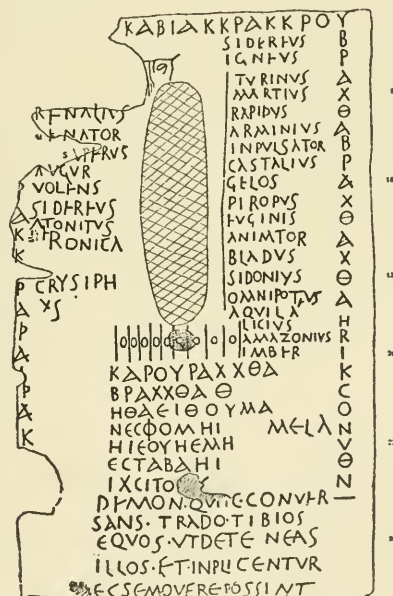 ΚΑΒΙΑΚΚΡΑΚΚΡΟΥ
SIDERIVS
IGNEVS
TVRINVS
MARTIVS
RAPIDVS
ARMINIVS
INPVLSATOR
CASTALIVS
GELOS
PIROPVS
EVGINIS
ANIMTOR
BLADVS
SIDONIVS
OMNIPOTAVS
AQVILA
LICIVS
AMAZONIVS
IMBER
ΒΡΑΧΘΑΒΡΑΧΘΑΧΘΑΗRIKCONVΘN
RENATVS
VENATOR
SVPERVS
AVGVR
VOLENS
SIDEREVS
ATONITVS
RONICA
CRYSIPH
VS
ΑΚΚΡΑΡΑΡΑΚ
ΚΑΡΟΥΡΑΧΧΘΑ
ΒΡΑΧΧΘΑΘ
ΗΘΑΕΙΘΟΥΜΑ
ΝΕCΦΟΜΗΙ ΜΕLΑ
ΗΙΕΟΥΗΕΜΗ
ΕCΤΑΒΑΗΙ
IXCITO S
DEMON·QVITCCONVER—
SANS·TRADO·TIBIOS
EQVOS·VTDETENEAS
ILLOS·ET·INPLICENTVR
ECSEMOVEREPOSSINT